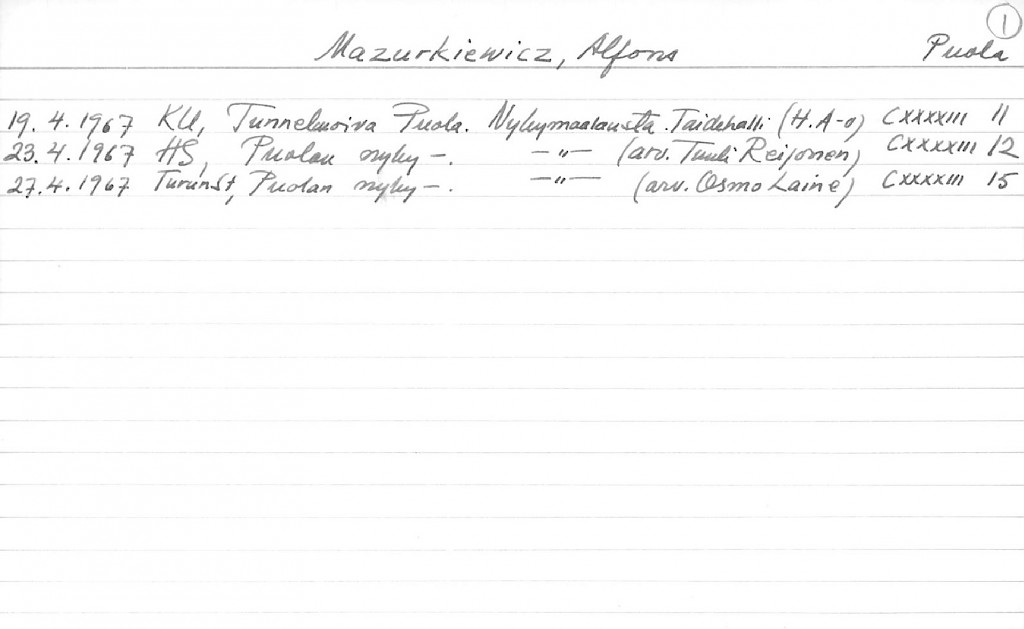 1
Mazurkiewicz, Alfons Puola
19. 4. 1967 KU, Tunnelmoiva Puola. Nykymaalausta. Taidehalli (H. A-o) CXXXXIII 11
23. 4. 1967 HS, Puolan nyky-. -"- (arv. Tuuli Reijonen) CXXXXIII 12
27. 4. 1967 Turunst, Puolan nyky-. -"- (arv. Osmo Laine) CXXXXIII 15